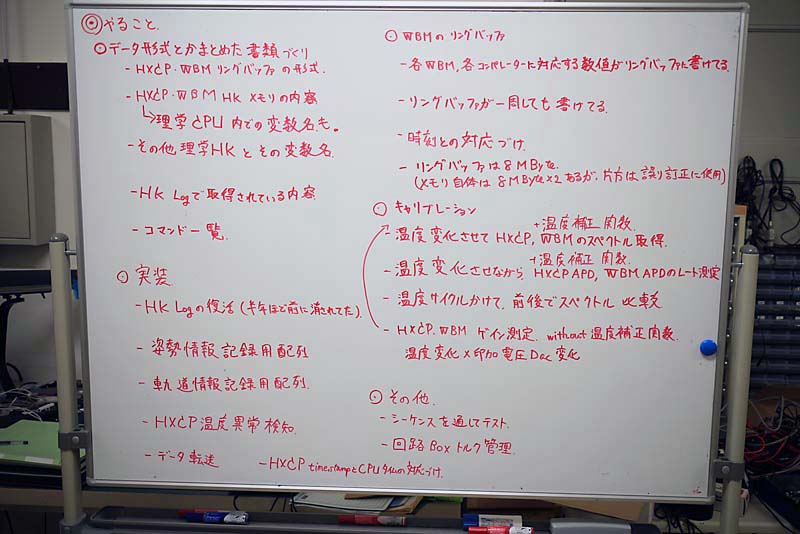 ◎やること.
⊙データ形式とかまとめた書類づくり
- HXCP・WBM リングバッファの形式.
- HXCP・WBM HK メモリの内容
↳理学CPU内での変数名も。
- その他 理学HKとその変数名.
- HK Logで取得されている内容
- コマンド一覧.
⊙ 実装
- HK Logの復活 (半年ほど前に消されてた).
- 姿勢情報記録用配列
- 軌道情報記録用配列.
- HXCP温度異常検知.
- データ転送
- HXCP timestampとCPU timeの対応づけ.
⊙ WBMのリングバッファ
- 各WBM,各コンパレーターに対応する数値がリングバッファに書けてる.
- リングバッファが一周しても書けてる.
- 時刻との対応づけ.
- リングバッファは8MByte.
(メモリ自体は8MByte×2あるが、片方は誤り訂正に使用)
⊙ キャリブレーション
+温度補正関数.
- 温度変化させて HXCP, WBMのスペクトル取得.
+温度補正関数.
- 温度変化させながら HXCP APD, WBM APDのレート測定
- 温度サイクルかけて、前後でスペクトル比較
- HXCP・WBM ゲイン測定. without温度補正関数.
温度変化×印加電圧Dac変化
⊙ その他.
- シーケンスを通してテスト.
- 回路Boxトルク管理.